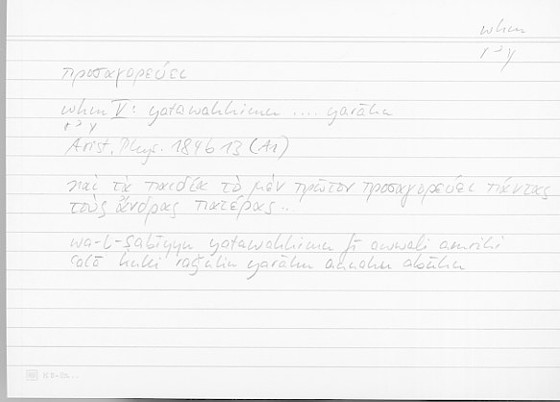 whm
rʾy
προσαγορεύει
whm V: yatawahhimu .... yarāhu
rʾy
Arist. Phys. 184b13 (A1)
καὶ τὰ παιδία τὸ μὲν πρῶτον προσαγορεύει πάντας
τοὺς ἄνδρας πατέρας..
wa-l-ṣabīyyu yatawahhimu fī awwali amrihi
ʿalā kulli raǧulin yarāhu annahu abūhu